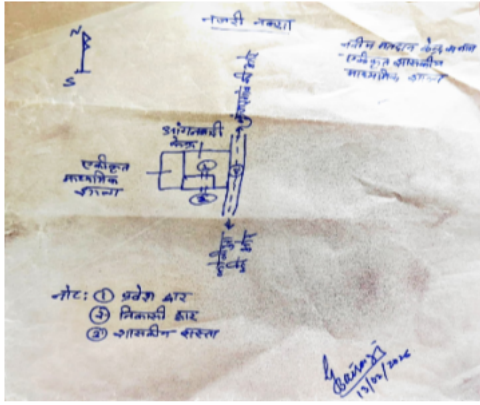 नजरी नक्शा
N
S
नवीन मतदान केन्द्र का नाम
एकीकृत शासकीय
माध्यमिक शाला
की ओर
आंगनवाड़ी
केन्द्र
एकीकृत
माध्यमिक
शाला
की ओर
नोट: ① प्रवेश द्वार
② निकासी द्वार
③ शासकीय रास्ता
13/02/2026